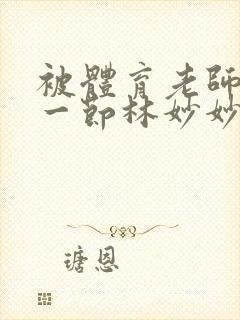 被體育老師
一節林妙妙
瑭恩